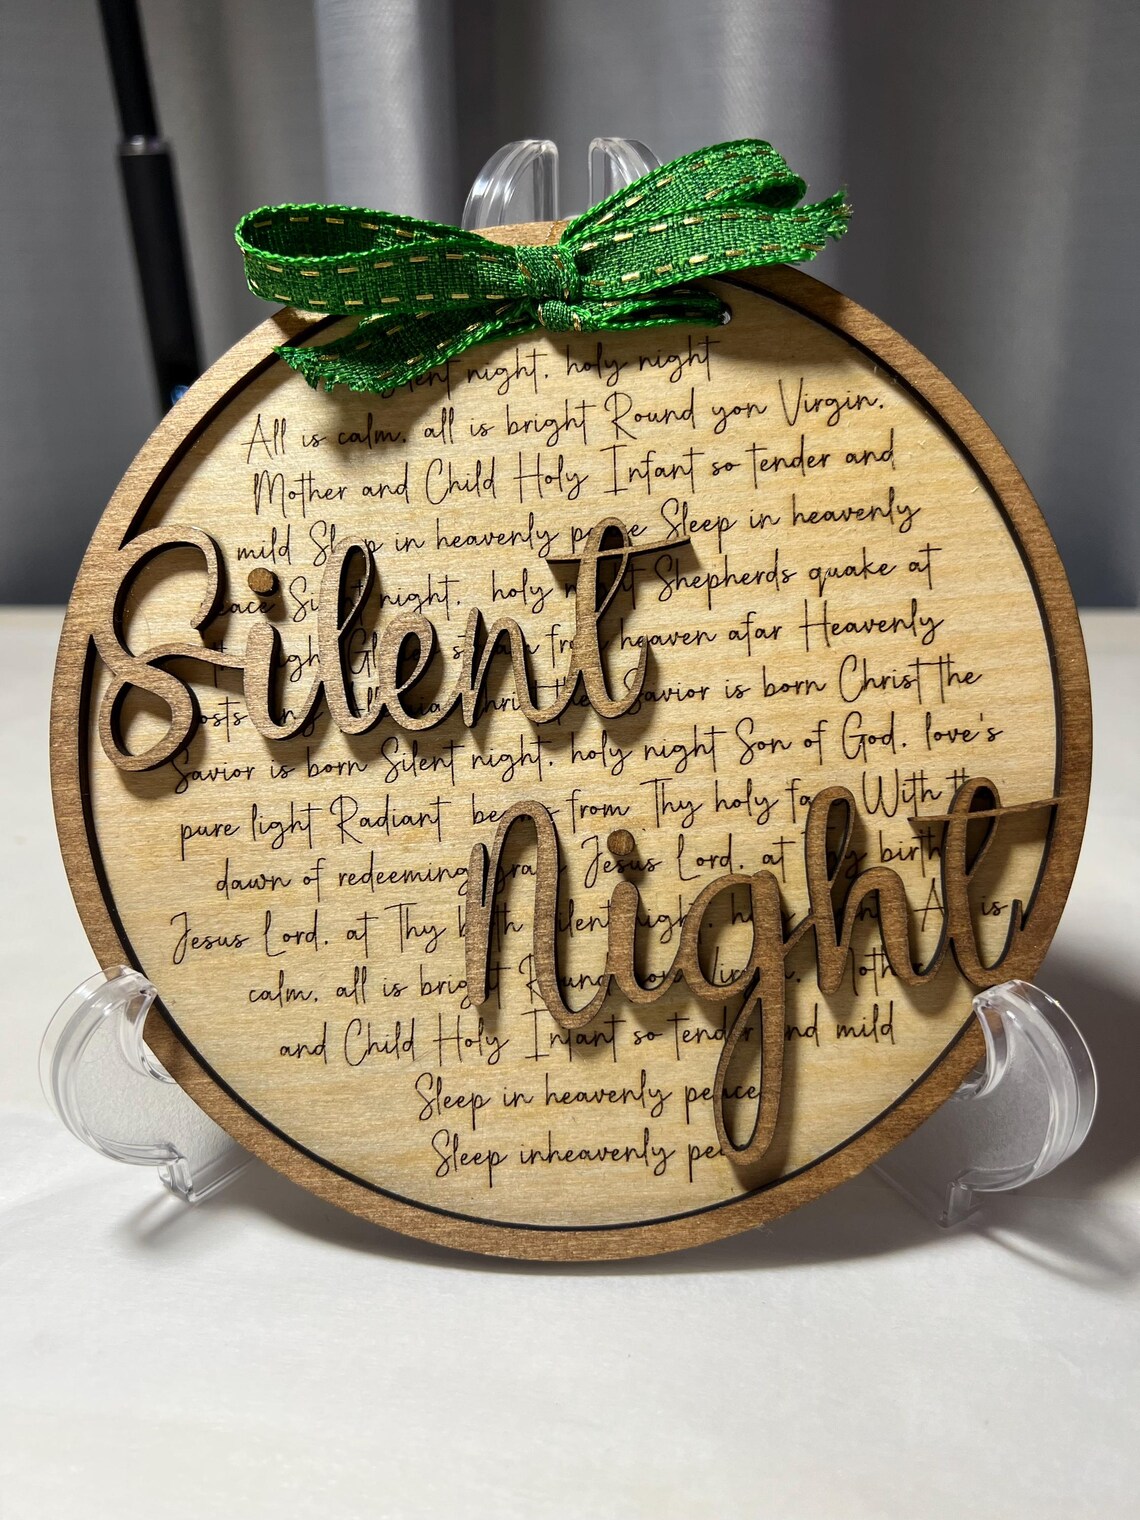 night, holy night
All is calm, all is bright Round yon Virgin,
Mother and Child Holy Infant so tender and
mild in heavenly Sleep in heavenly
night, holy Shepherds quake at
heaven afar Heavenly
Silent
Savior is born Christ the
Savior is born Silent night, holy night Son of God, love's
pure light Radiant from Thy holy With
dawn of redeeming Jesus Lord, at birth
Night
Jesus Lord, at Thy is
calm, all is
and Child Holy Infant so mild
Sleep in heavenly peace
Sleep inheavenly